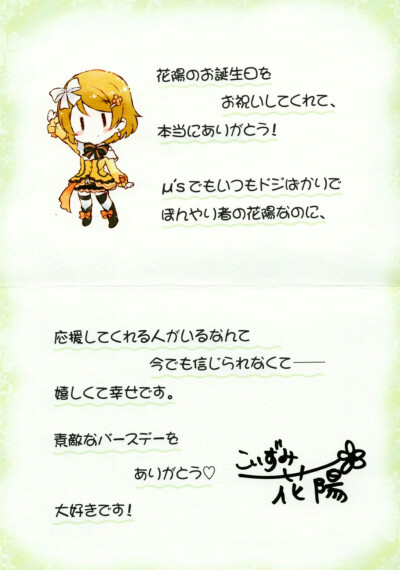 花陽のお誕生日を
お祝いしてくれて、
本当にありがとう!
μ'sでもいつもドジばかりで
ぼんやり者の花陽なのに、
応援してくれる人がいるなんて
今でも信じられなくて――
嬉しくて幸せです。
素敵なバースデーを
ありがとう♡
大好きです!
こいずみ
花陽